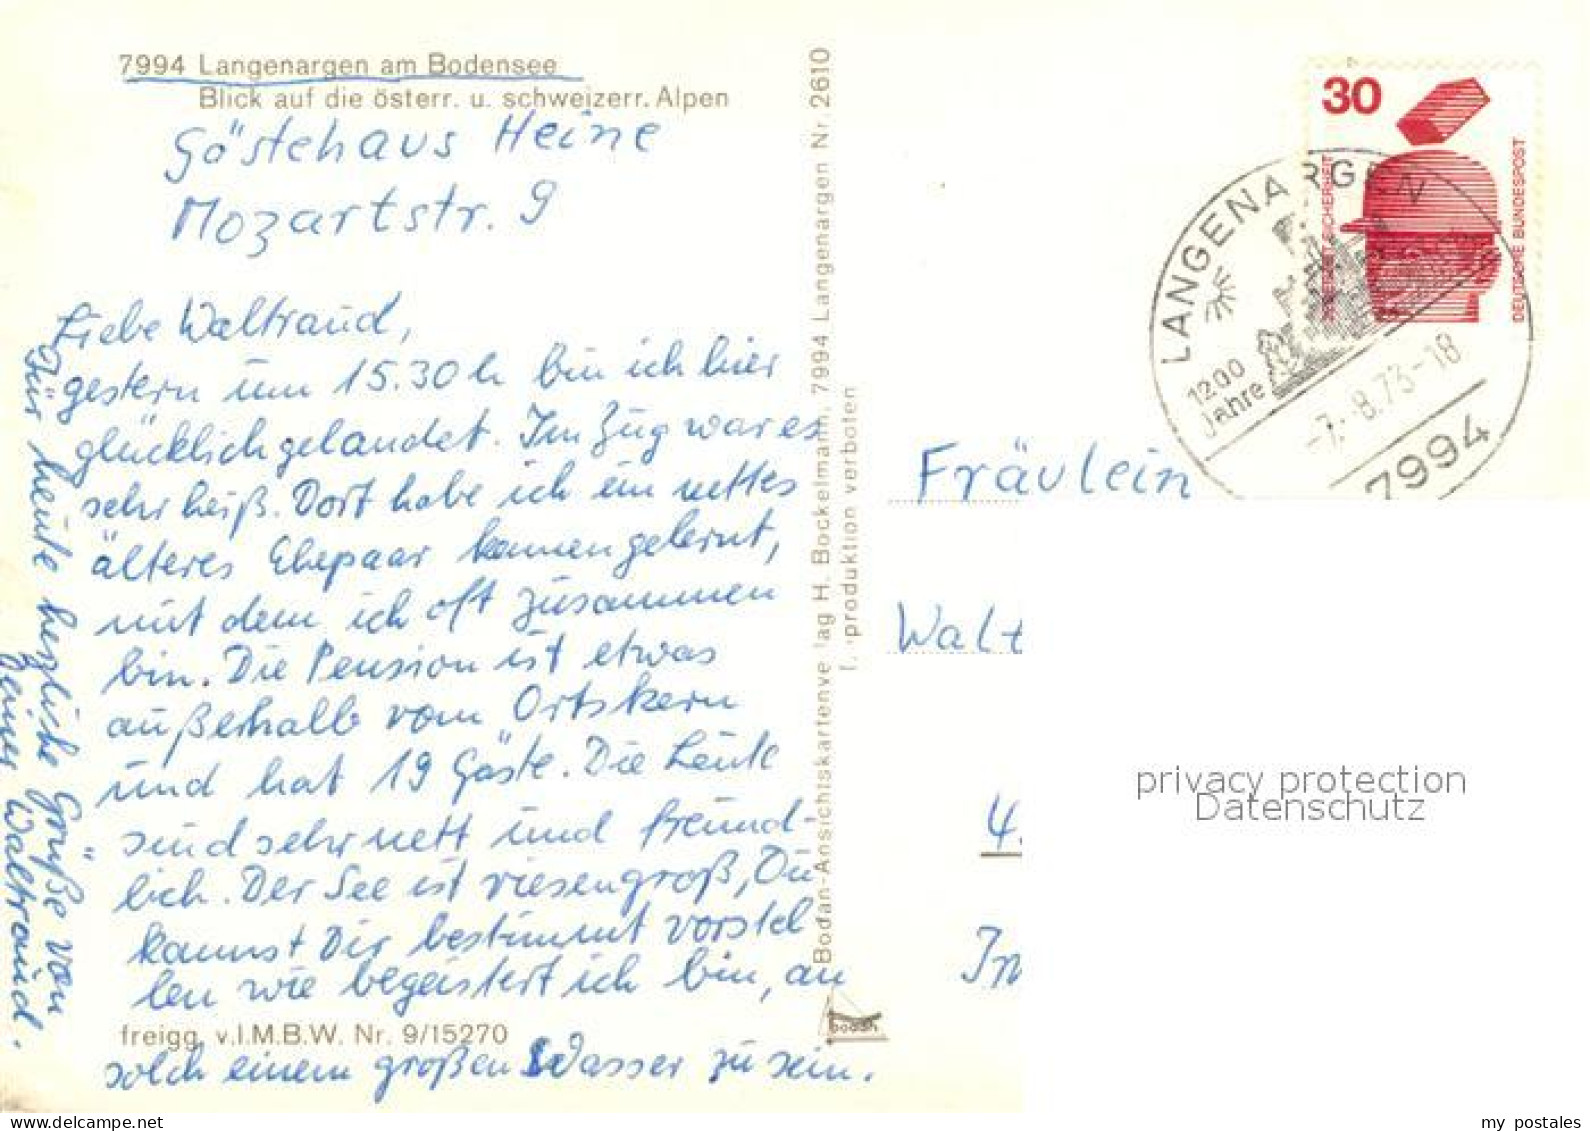 7994 Langenargen am Bodensee
Blick auf die österr. u. schweizerr. Alpen
Gästehaus Heine
Mozartstr. 9
Liebe Waltraud,
gestern um 15.30 h bin ich hier
glücklich gelandet. Im Zug war es
sehr heiß. Dort habe ich ein nettes
älteres Ehepaar kennengelernt,
mit dem ich oft zusammen
bin. Die Pension ist etwas
außerhalb vom Ortskern
und hat 19 Gäste. Die Leute
sind sehr nett und freund-
lich. Der See ist riesengroß, Du
kannst Dir bestimmt vorstel
len wie begeistert ich bin, an
solch einem großen Wasser zu sein.
Für heute herzliche Grüße von
Deiner Waltraud.
freigg. v. I.M.B.W. Nr. 9/15270
Bodan-Ansichtskartenve lag H. Bockelmann, 7994 Langenargen Nr. 2610
produktion verboten
bodan
30
DEUTSCHE BUNDESPOST
LANGENARGEN
1200
Jahre
-7.-8.73-18
7994
Fräulein
Walt
4.
In
privacy protection
Datenschutz
my postales